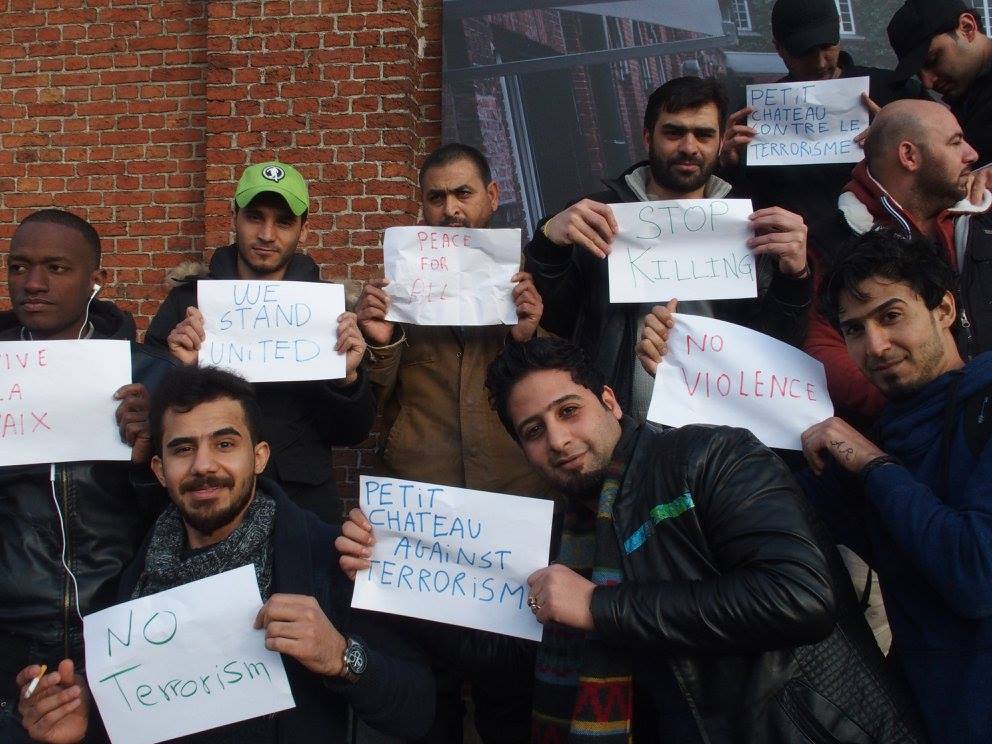 PETIT
CHATEAU
CONTRE LE
TERRORISME
STOP
KILLING
PEACE
FOR
ALL
WE
STAND
UNITED
NO
VIOLENCE
VIVE
LA
PAIX
PETIT
CHATEAU
AGAINST
TERRORISM
NO
Terrorism